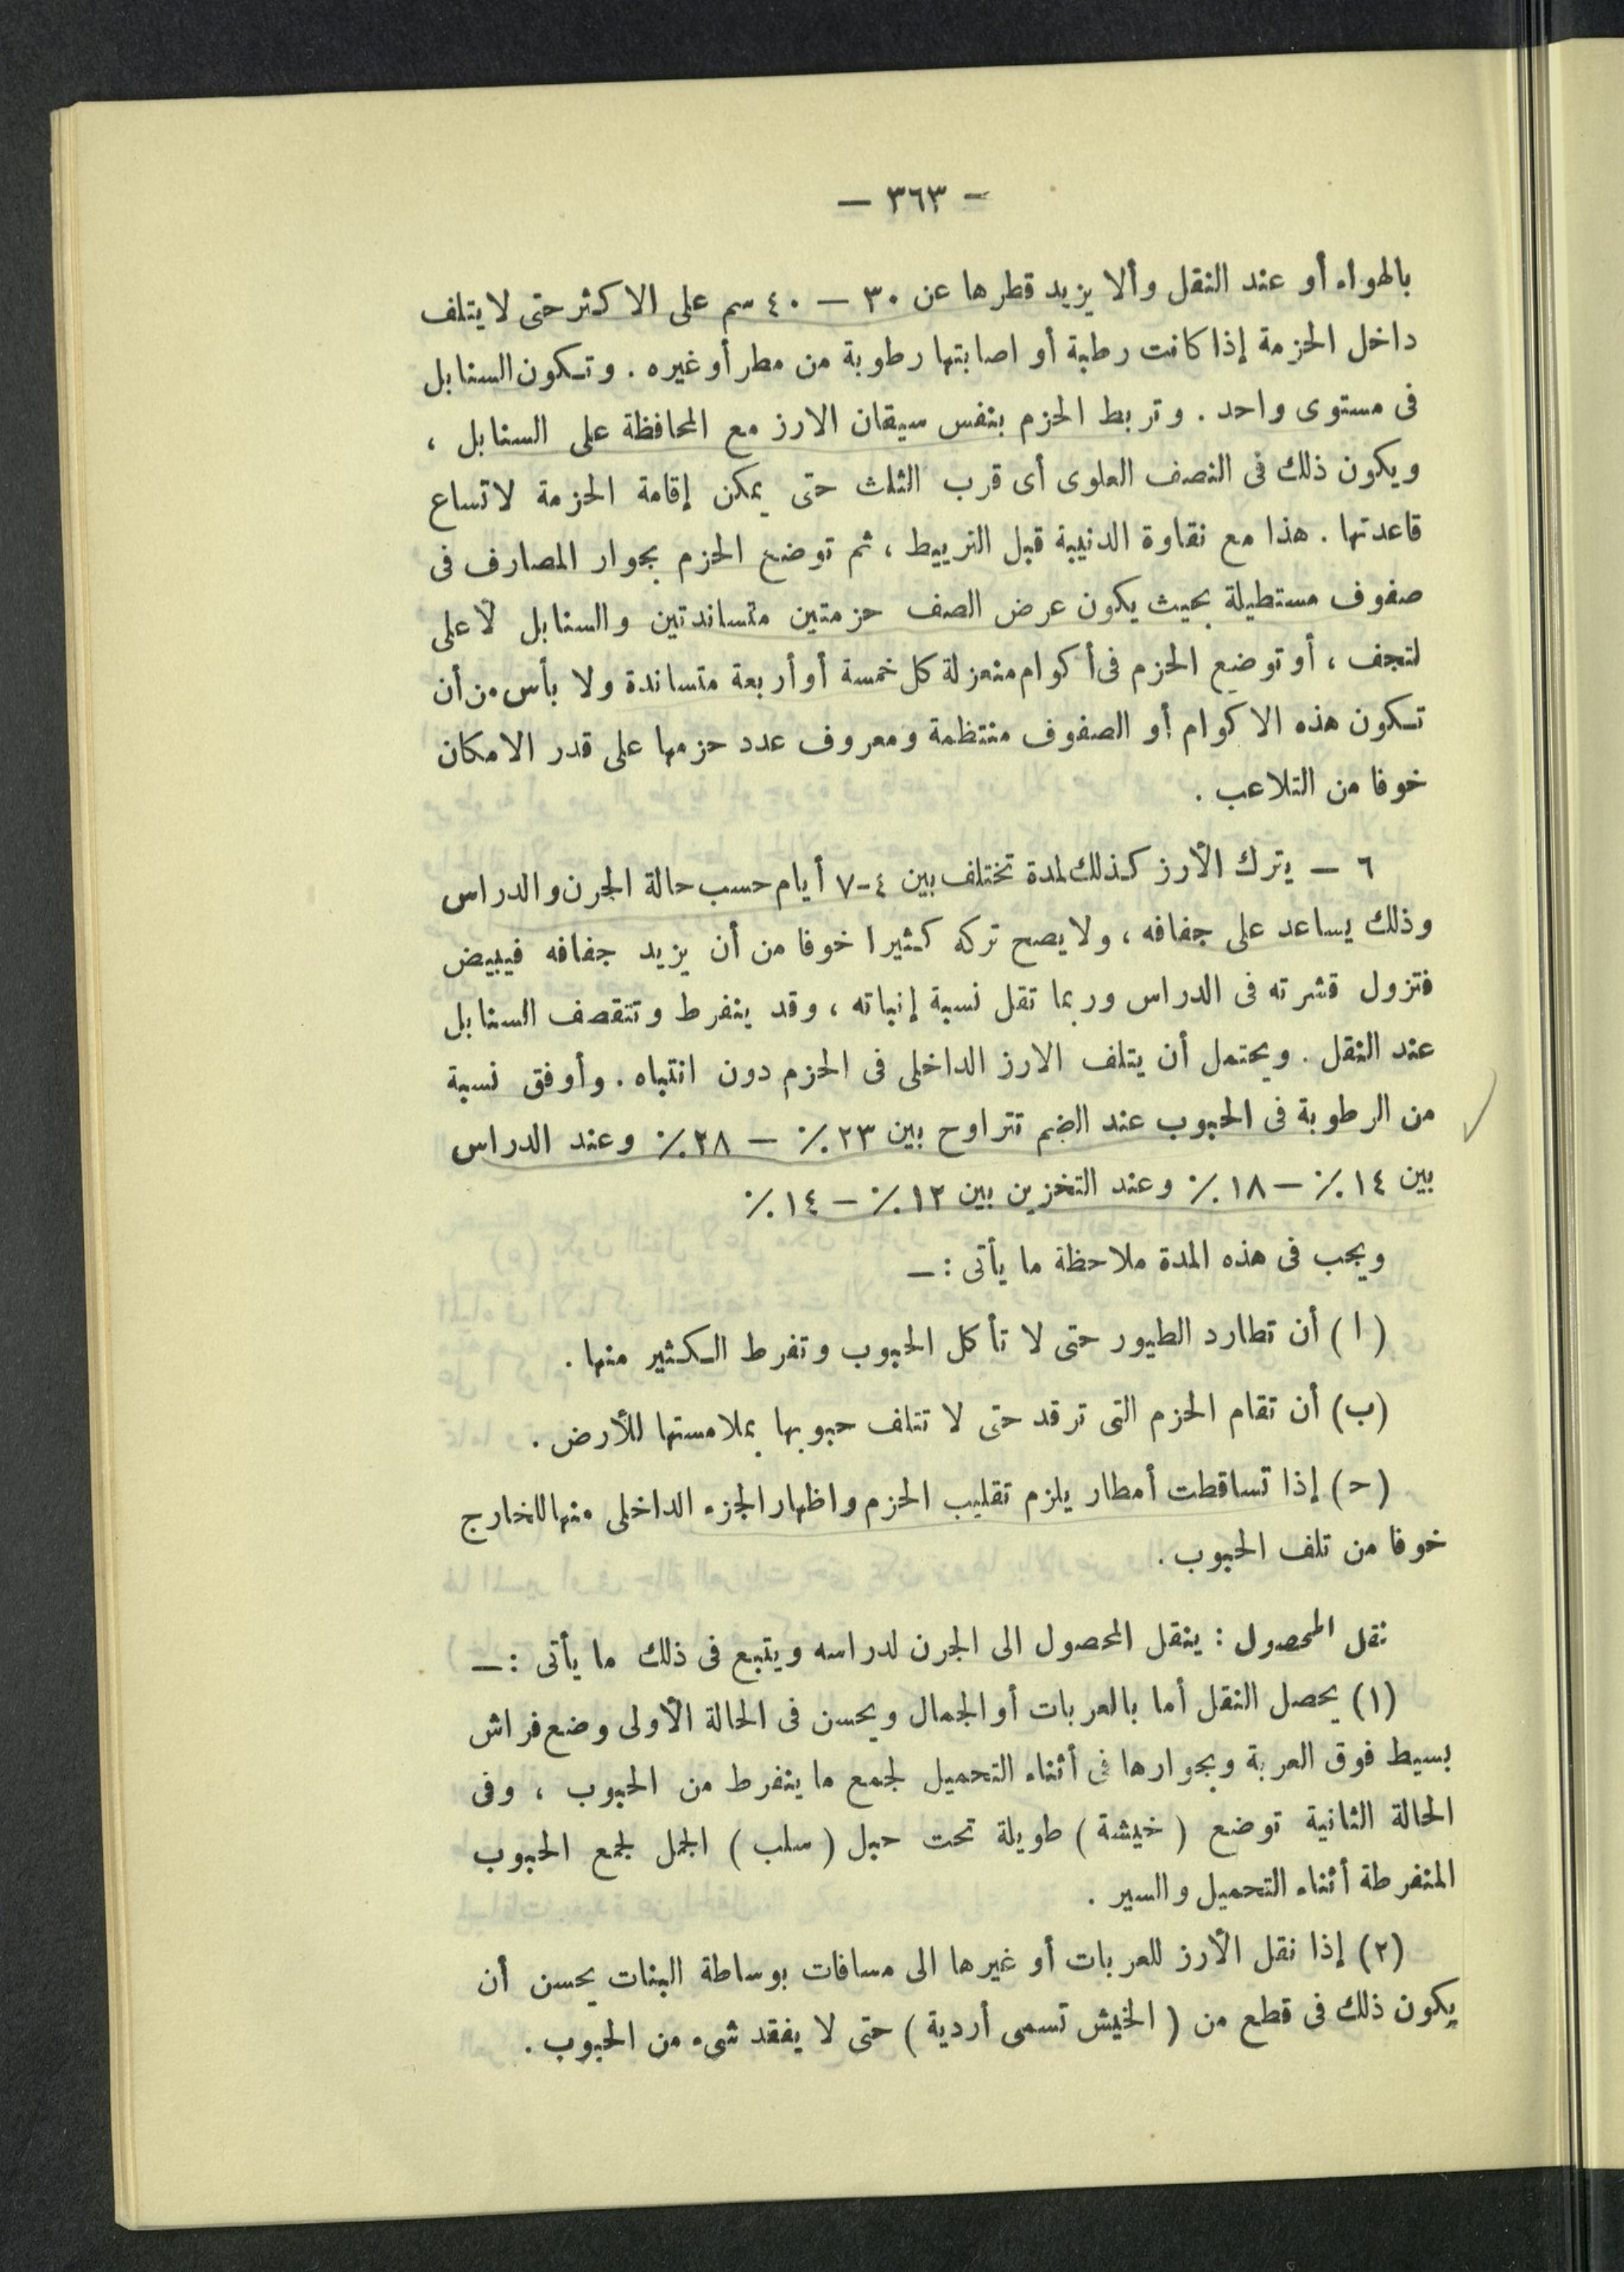 — ٣٦٣ —
بالهواء أو عند النقل وألا يزيد قطرها عن ٣٠ — ٤٠ سم على الاكثر حتى لا يتلف
داخل الحزمة إذا كانت رطبة أو اصابتها رطوبة من مطر أو غيره . وتكون السنابل
فى مستوى واحد . وتربط الحزم بنفس سيقان الارز مع المحافظة على السنابل ،
ويكون ذلك فى النصف العلوى أى قرب الثلث حتى يمكن إقامة الحزمة لاتساع
قاعدتها . هذا مع نقاوة الدنيبة قبل التربيط ، ثم توضع الحزم بجوار المصارف فى
صفوف مستطيلة بحيث يكون عرض الصف حزمتين متساندتين والسنابل لأعلى
لتجف ، أو توضع الحزم فى أكوام منعزلة كل خمسة أو أربعة متساندة ولا بأس من أن
تكون هذه الاكوام أو الصفوف منتظمة ومعروف عدد حزمها على قدر الامكان
خوفا من التلاعب .
٦ — يترك الأرز كذلك لمدة تختلف بين ٤-٧ أيام حسب حالة الجرن والدراس
وذلك يساعد على جفافه ، ولا يصح تركه كثيرا خوفا من أن يزيد جفافه فيبيض
فتزول قشرته فى الدراس وربما تقل نسبة إنباته ، وقد ينفرط وتتقصف السنابل
عند النقل . ويحتمل أن يتلف الارز الداخلى فى الحزم دون انتباه . وأوفق نسبة
من الرطوبة فى الحبوب عند الضم تتراوح بين ٢٣ ٪ — ٢٨ ٪ وعند الدراس
بين ١٤ ٪ — ١٨ ٪ وعند التخزين بين ١٢ ٪ — ١٤ ٪
ويجب فى هذه المدة ملاحظة ما يأتى : —
( ا ) أن تطارد الطيور حتى لا تأكل الحبوب وتفرط الكثير منها .
(ب) أن تقام الحزم التى ترقد حتى لا تتلف حبوبها بملامستها للأرض .
(ح) إذا تساقطت أمطار يلزم تقليب الحزم واظهار الجزء الداخلى منها للخارج
خوفا من تلف الحبوب .
نقل المحصول : ينقل المحصول الى الجرن لدراسه ويتبع فى ذلك ما يأتى : —
(١) يحصل النقل أما بالعربات أو الجمال ويحسن فى الحالة الأولى وضع فراش
بسيط فوق العربة وبجوارها فى أثناء التحميل لجمع ما ينفرط من الحبوب ، وفى
الحالة الثانية توضع ( خيشة ) طويلة تحت حبل ( سلب ) الجمل لجمع الحبوب
المنفرطة أثناء التحميل والسير .
(٢) إذا نقل الأرز للعربات أو غيرها الى مسافات بوساطة البنات يحسن أن
يكون ذلك فى قطع من ( الخيش تسمى أردية ) حتى لا يفقد شىء من الحبوب .